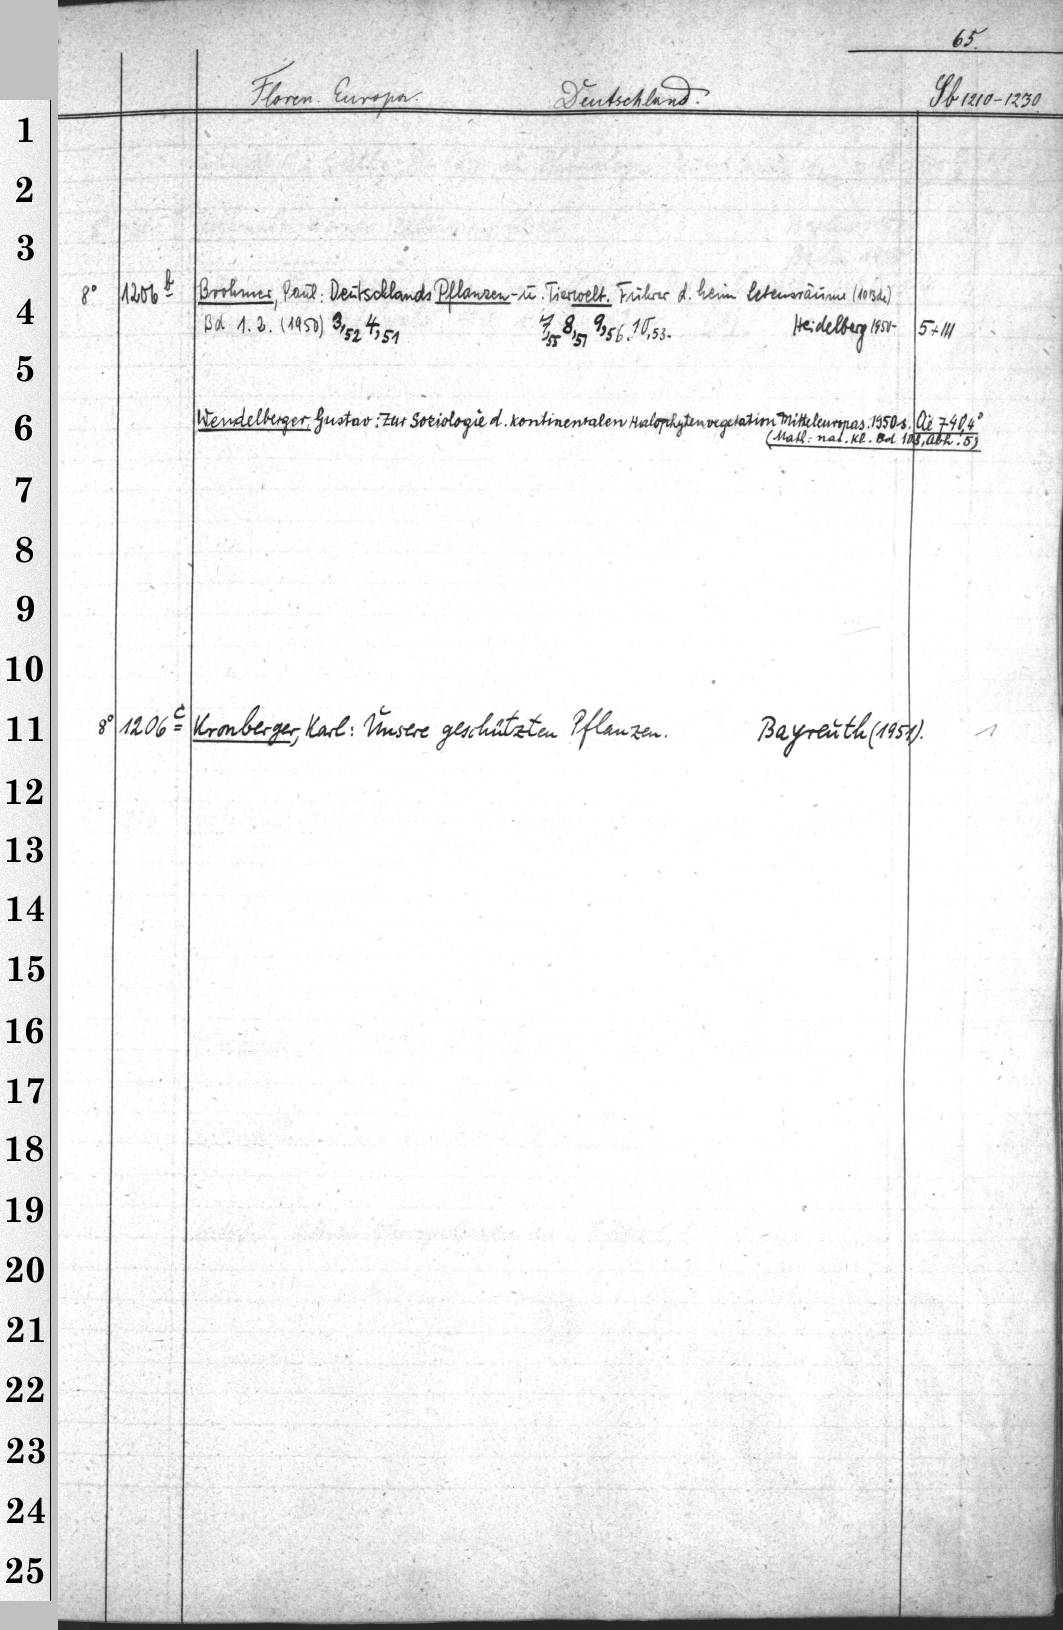 65.
Floren. Europa. Deutschland. Sb 1210-1230
1
2
3
8° 1206 b Brohmer, Paul: Deutschlands Pflanzen- u. Tierwelt. Führer d. heim Lebensräume (10 Bde)
4
Bd 1. 2. (1950) 3,52 4,51 7,55 8,51 9,56. 10,53. Heidelberg 1950- 5+III
5
6 Wendelberger, Gustav: Zur Soziologie d. kontinentalen Halophytenvegetation Mitteleuropas. 1950 s. Ai 740,4°
(Math.-nat. Kl. Bd 108, Abh. 5)
7
8
9
10
11 8° 1206 c Kronberger, Karl: Unsere geschützten Pflanzen. Bayreuth (1951). 1
12
13
14
15
16
17
18
19
20
21
22
23
24
25